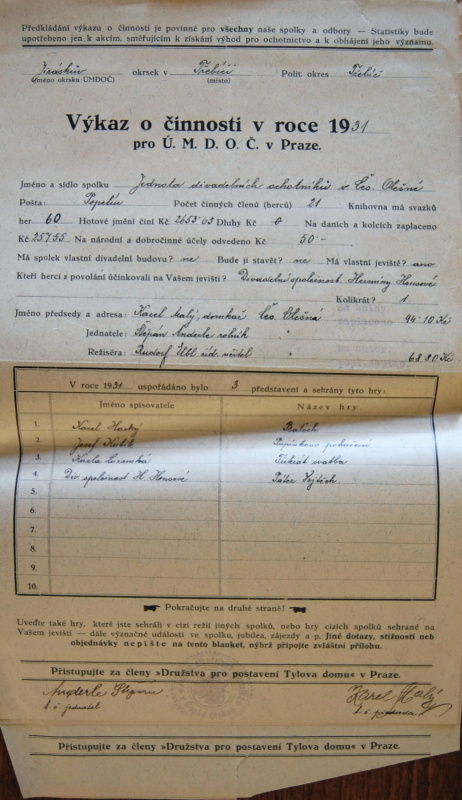 Předkládání výkazu o činnosti je povinné pro všechny naše spolky a odbory — Statistiky bude
upotřebeno jen k akcím, směřujícím k získání výhod pro ochotnictvo a k obhájení jeho významu.
Jiráskův okrsek v Třebíči Polit. okres Třebíč
(jméno okrsku ÚMDOČ) (místo)
Výkaz o činnosti v roce 1931
pro Ú. M. D. O. Č. v Praze.
Jméno a sídlo spolku Jednota divadelních ochotníků v Čes. Olešné
Pošta: Popelín Počet činných členů (herců) 21 Knihovna má svazků
her 60 Hotové jmění činí Kč 2653·65 Dluhy Kč 0 Na daních a kolcích zaplaceno
Kč 257·55 Na národní a dobročinné účely odvedeno Kč 50·–
Má spolek vlastní divadelní budovu? ne Bude ji stavět? ne Má vlastní jeviště? ano
Kteří herci z povolání účinkovali na Vašem jevišti? Divadelní společnost Hermíny Housové
Kolikrát? 1
Jméno předsedy a adresa: Karel Malý, domkář Čes. Olešná 94·10 Kč
Jednatele: Štěpán Anderle rolník "
Režiséra: Rudolf Übl říd. učitel " 68·80 Kč
V roce 1931 uspořádáno bylo 3 představení a sehrány tyto hry:
Jméno spisovatele Název hry
1. Karel
2. Josef Kubík pokušení
3. Karla Lužanská Třikrát svatba
4. Div. společnost H. Housové Páter Vojtěch
5.
6.
7.
8.
9.
10.
Pokračujte na druhé straně!
Uveďte také hry, které jste sehráli v cizí režii jiných spolků, nebo hry cizích spolků sehrané na
Vašem jevišti — dále význačné události ve spolku, jubilea, zájezdy a p. Jiné dotazy, stížnosti neb
objednávky nepište na tento blanket, nýbrž připojte zvláštní přílohu.
Přistupujte za členy »Družstva pro postavení Tylova domu« v Praze.
Anderle Štěpán Karel Malý
t. č. jednatel t. č. předseda
Přistupujte za členy »Družstva pro postavení Tylova domu« v Praze.